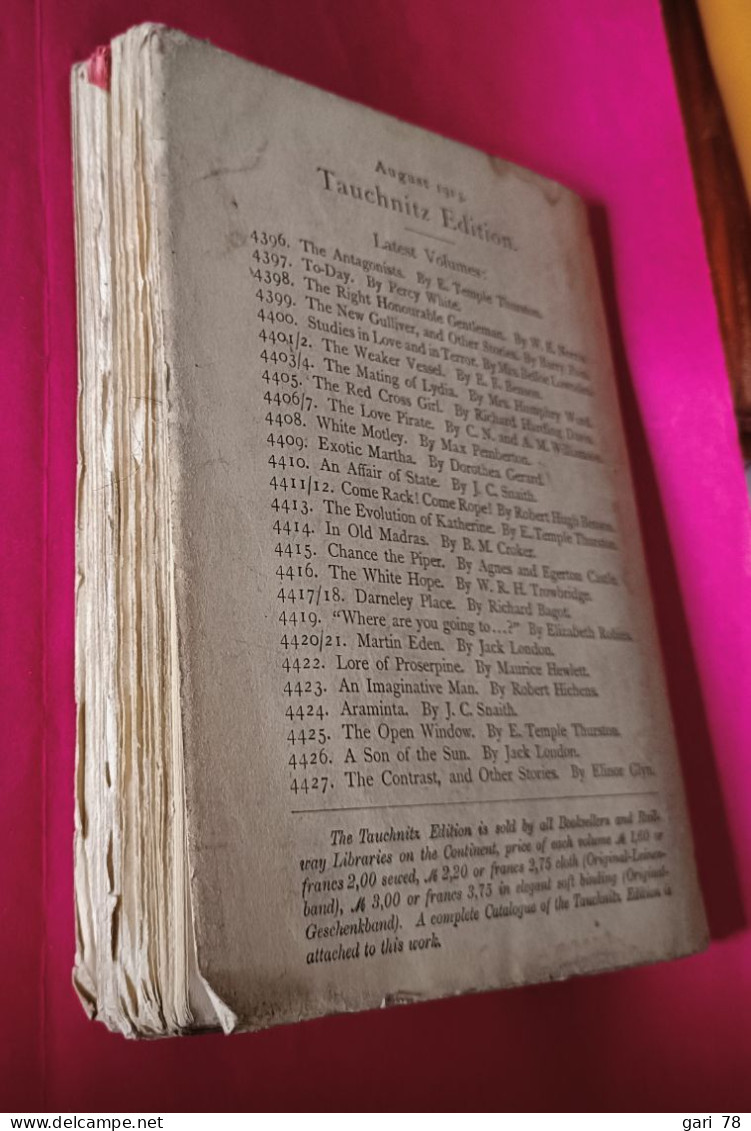 August 1913.
Tauchnitz Edition.
Latest Volumes:
4396. The Antagonists. By E. Temple Thurston.
4397. To-Day. By Percy White.
4398. The Right Honourable Gentleman. By W. E. Norris.
4399. The New Gulliver, and Other Stories. By Barry Pain.
4400. Studies in Love and in Terror. By Mrs. Belloc Lowndes.
4401/2. The Weaker Vessel. By E. F. Benson.
4403/4. The Mating of Lydia. By Mrs. Humphry Ward.
4405. The Red Cross Girl. By Richard Harding Davis.
4406/7. The Love Pirate. By C. N. and A. M. Williamson.
4408. White Motley. By Max Pemberton.
4409. Exotic Martha. By Dorothea Gerard.
4410. An Affair of State. By J. C. Snaith.
4411/12. Come Rack! Come Rope! By Robert Hugh Benson.
4413. The Evolution of Katherine. By E. Temple Thurston.
4414. In Old Madras. By B. M. Croker.
4415. Chance the Piper. By Agnes and Egerton Castle.
4416. The White Hope. By W. R. H. Trowbridge.
4417/18. Darneley Place. By Richard Bagot.
4419. "Where are you going to...?" By Elizabeth Robins.
4420/21. Martin Eden. By Jack London.
4422. Lore of Proserpine. By Maurice Hewlett.
4423. An Imaginative Man. By Robert Hichens.
4424. Araminta. By J. C. Snaith.
4425. The Open Window. By E. Temple Thurston.
4426. A Son of the Sun. By Jack London.
4427. The Contrast, and Other Stories. By Elinor Glyn.
The Tauchnitz Edition is sold by all Booksellers and Rail-
way Libraries on the Continent, price of each volume ℳ 1,60 or
francs 2,00 sewed, ℳ 2,20 or francs 2,75 cloth (Original-Leinen-
band), ℳ 3,00 or francs 3,75 in elegant soft binding (Original-
Geschenkband). A complete Catalogue of the Tauchnitz Edition is
attached to this work.
www.delcampe.net
gari 78